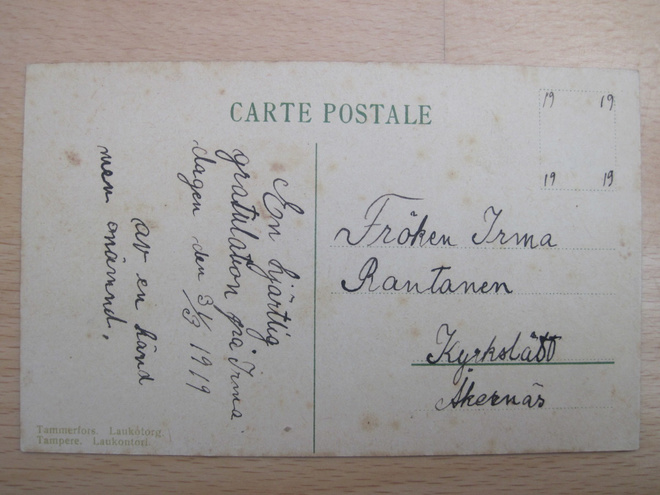 CARTE POSTALE
19 19
19 19
En hjärtlig
gratulation på Irma
dagen den 3/3 1919
av en känd
men onämnd.
Fröken Irma
Rantanen
Kyrkslätt
Åkernäs
Tammerfors. Laukötorg.
Tampere. Laukontori.